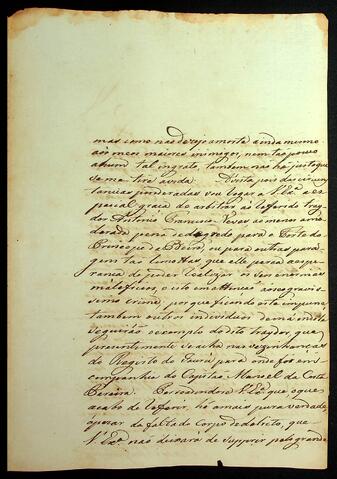 mas como não dezejo a morte ainda mesmo
aos meos maiores inimigos, nem tão pouco
a hum tal ingrato, tambem não he justo que
se me tire a vida. Avista pois das circuns
tancias ponderadas vou rogar a V. Exª. a es
pecial graça de arbitrar ao referido tray
dor Antonio Francisco
pena de degredo para o Forte do
Principe da Beira, ou para outras para
gens tão remottas que elle perca a espe
rança de poder realizar os seus
maleficios, e este
simo crime, porque ficando este impune,
tambem outros individuos de má indole
seguirão o exemplo do dito traydor, que
prezentemente se acha nas vezinhanças
do Registo do Jaurú para onde foi em
companhia do Capitão Manoel da Costa
Pereira. Persuadindo a V. Exª. que o que
acabo de referir, he a mais pura verdade,
apezar da falta do Corpo de delicto, que
V. Exª. não deixará de supprir pelo grande